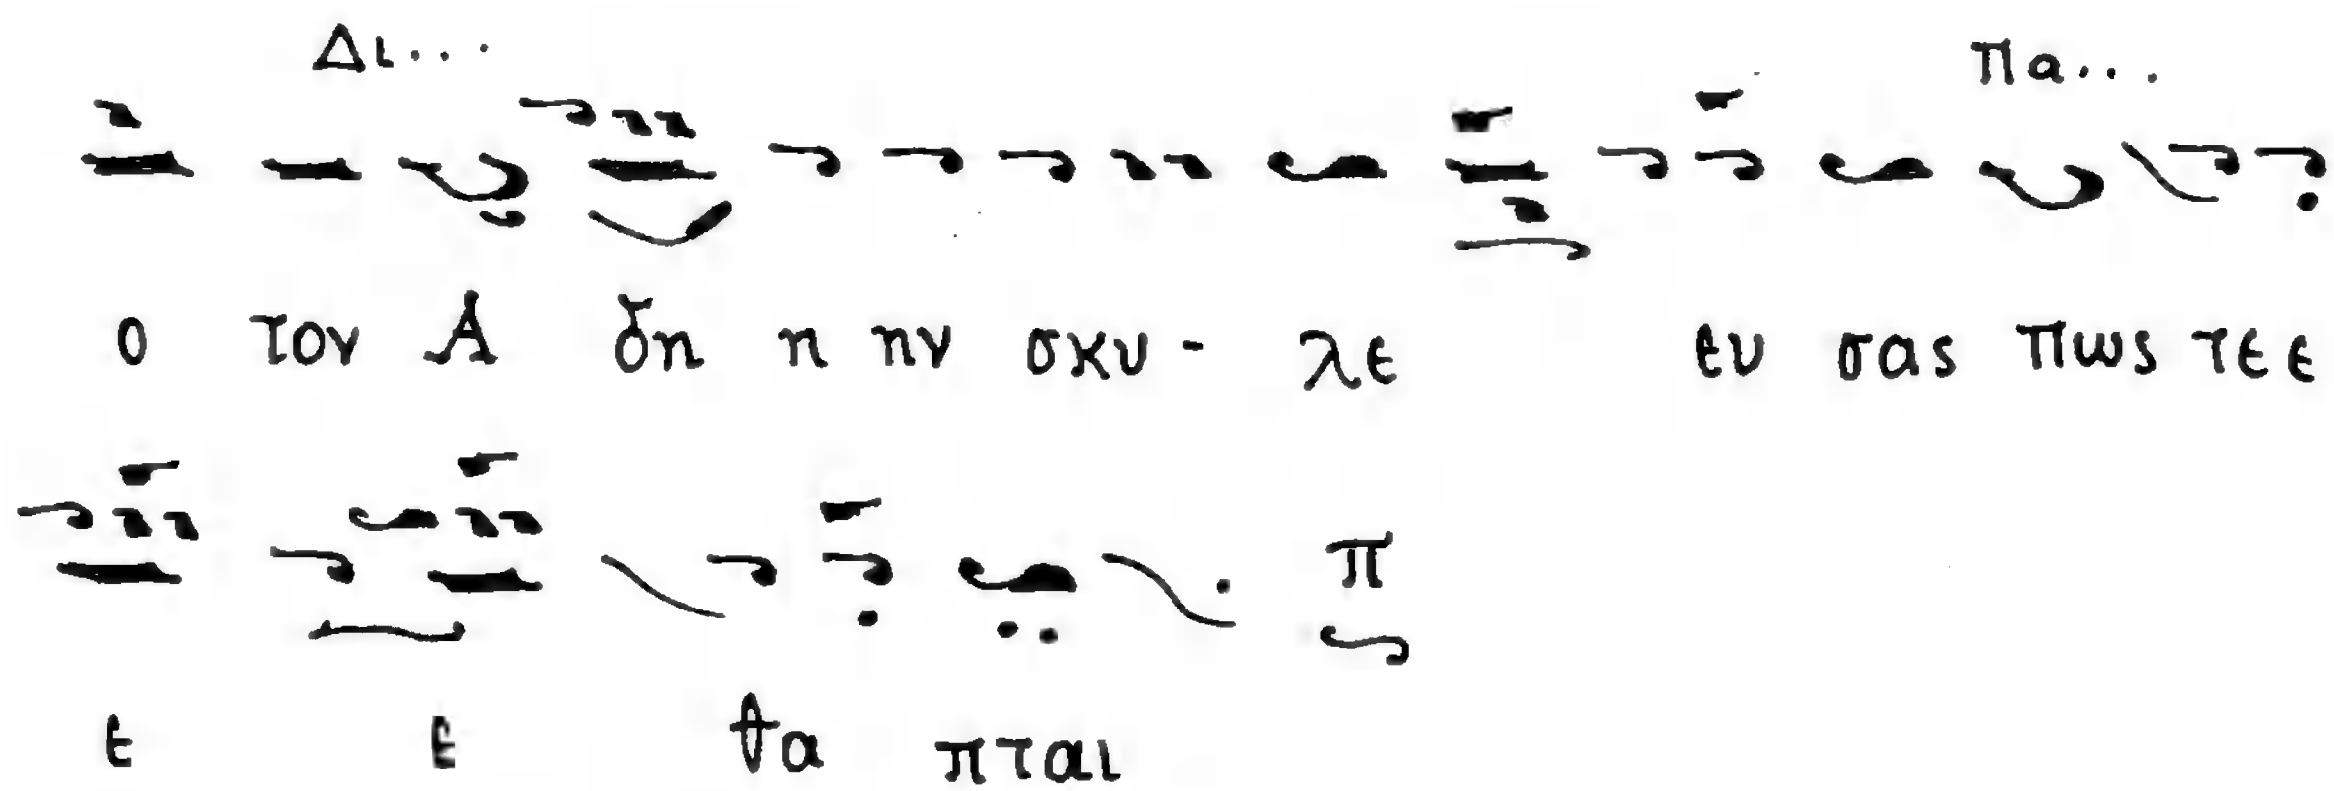 Δι... Πα...
ο τον Α δη η ην σκυ - λε ευ σας πως τε ε
π
ε ε θα πται